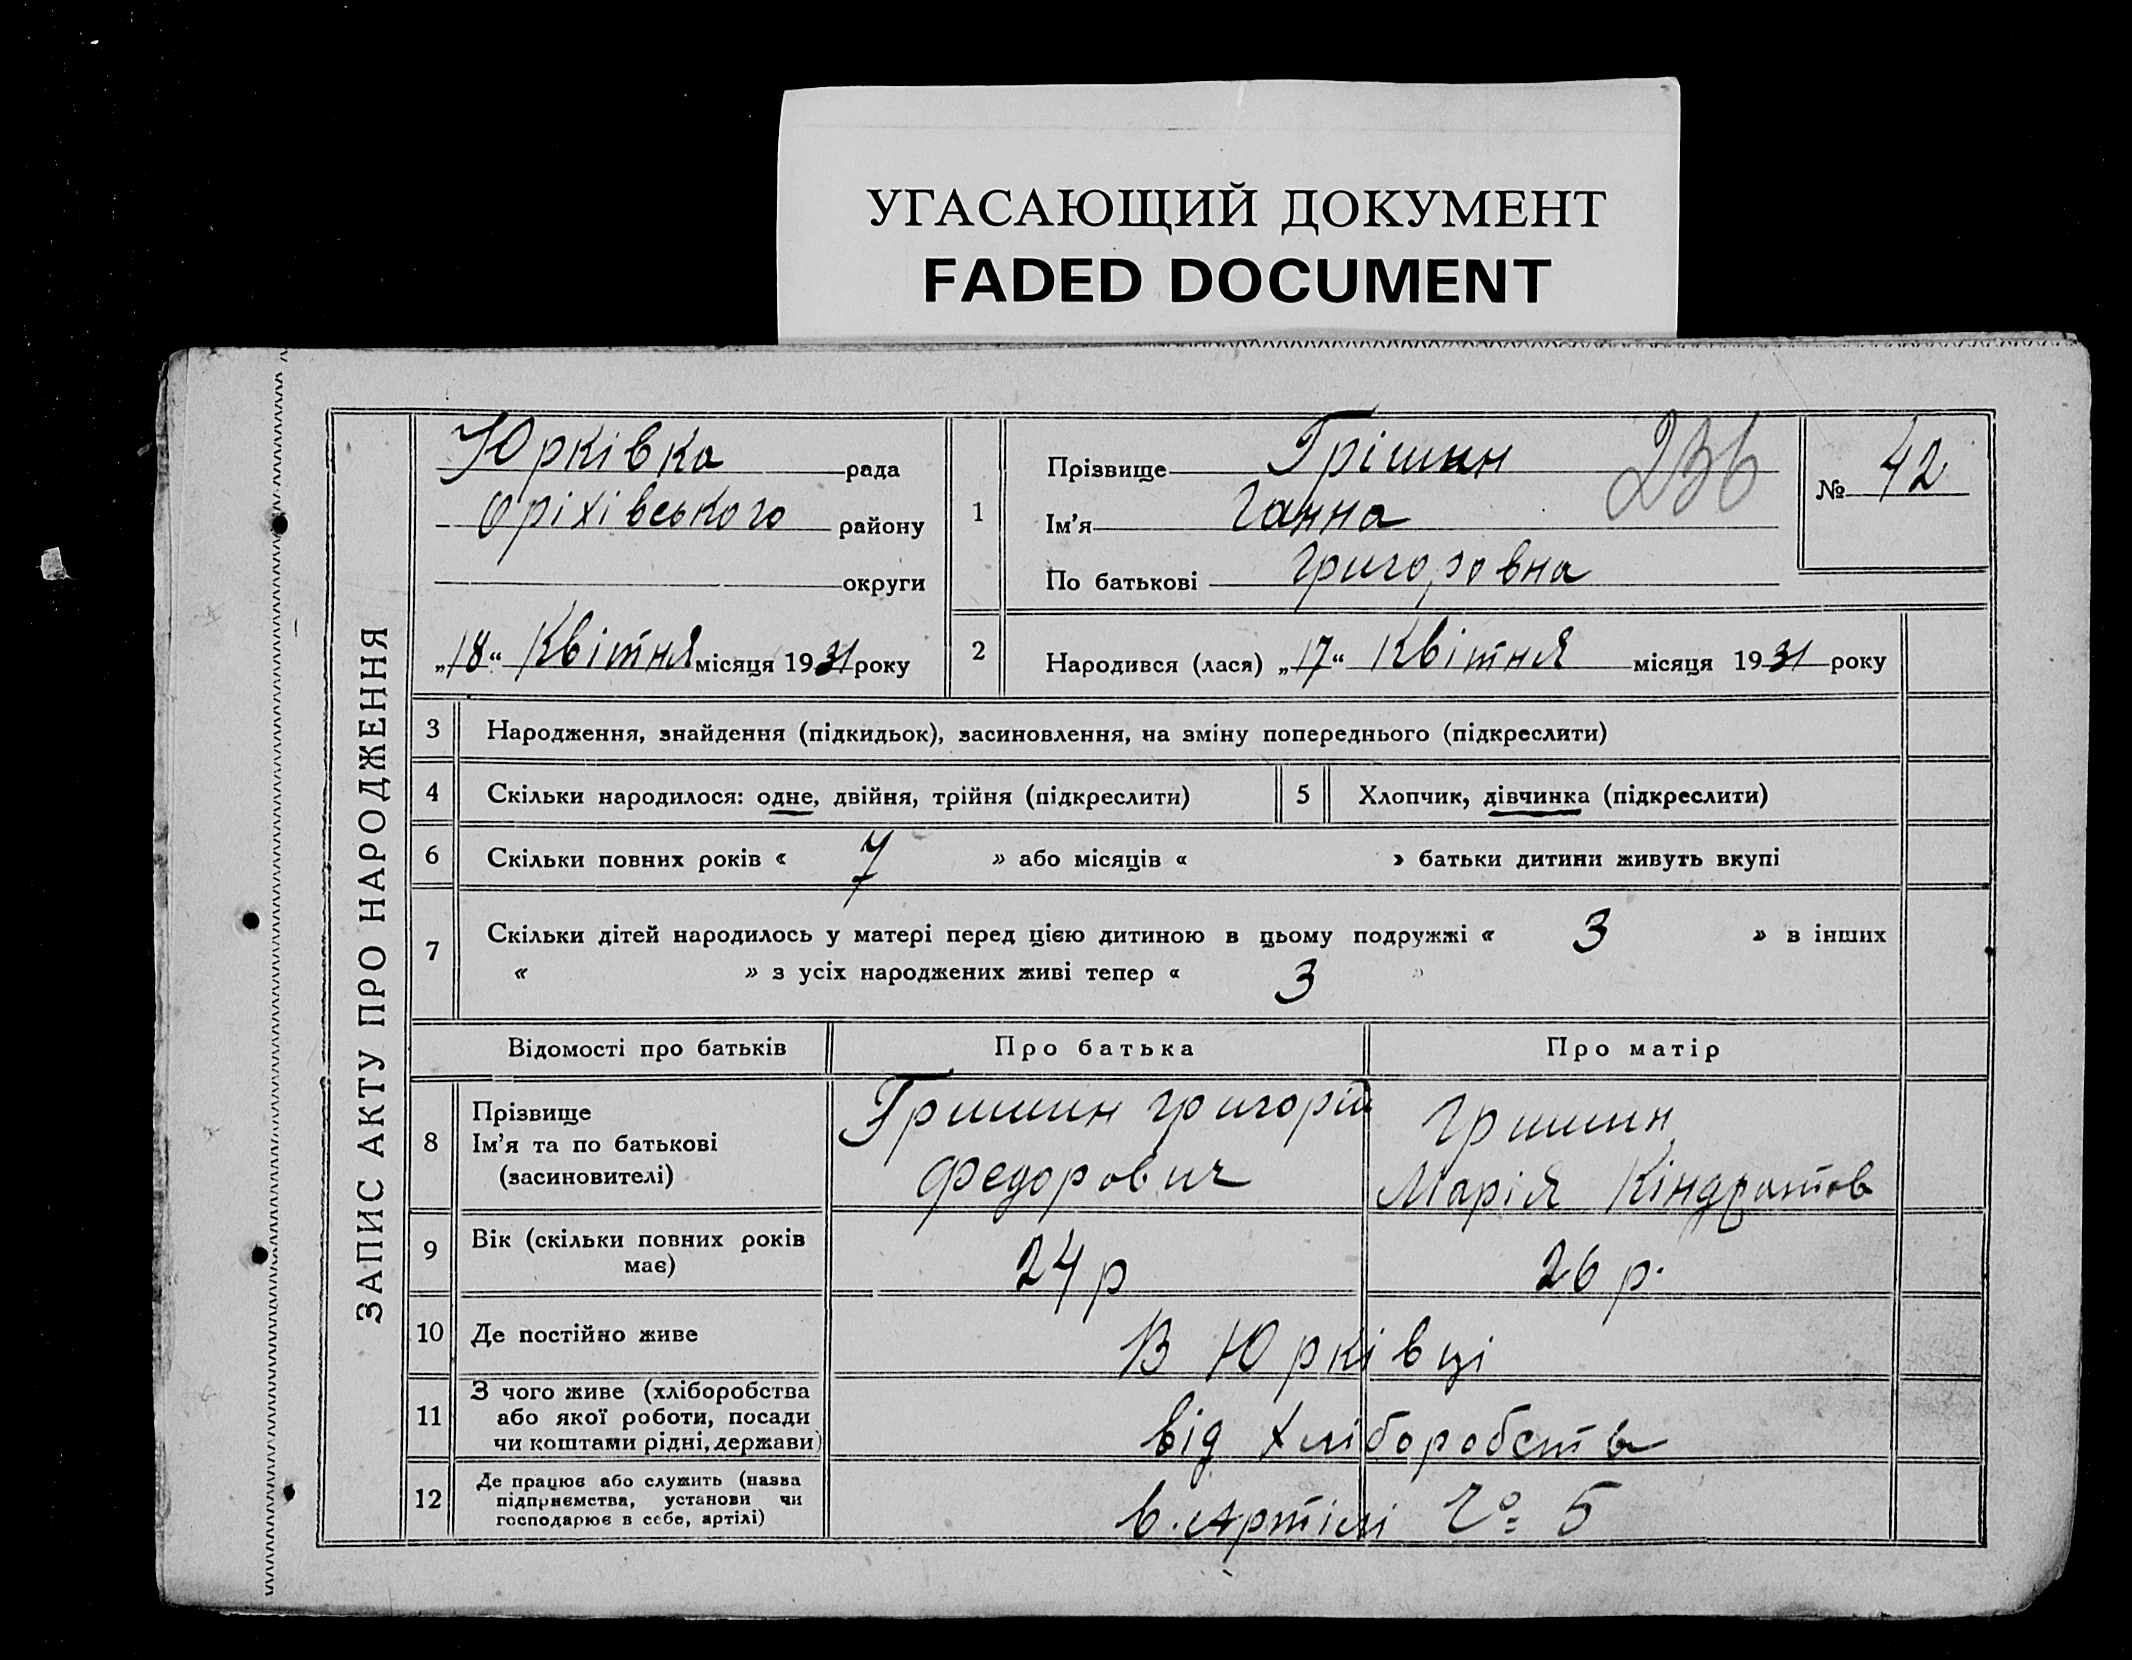 УГАСАЮЩИЙ ДОКУМЕНТ
FADED DOCUMENT
ЗАПИС АКТУ ПРО НАРОДЖЕННЯ
Юрківка рада
Оріхівського району
округи
„18“ Квітня місяця 1931 року
1
Прізвище Грішин
236
Ім'я Ганна
По батькові Григоровна
№ 42
2 Народився (лася) „17“ Квітня місяця 1931 року
3 Народження, знайдення (підкидьок), засиновлення, на зміну попереднього (підкреслити)
4 Скільки народилося: одне, двійня, трійня (підкреслити) 5 Хлопчик, дівчинка (підкреслити)
6 Скільки повних років « 7 » або місяців « » батьки дитини живуть вкупі
7 Скільки дітей народилось у матері перед цією дитиною в цьому подружжі « 3 » в інших
« » з усіх народжених живі тепер « 3 »
Відомості про батьків Про батька Про матір
8 Прізвище
Ім'я та по батькові
(засиновителі)
Гришин Григорій
Федорович
Гришин
Марія Кіндратов
9 Вік (скільки повних років
має)
24 р
26 р.
10 Де постійно живе В Юрківці
11 З чого живе (хліборобства
або якої роботи, посади
чи коштами рідні, держави)
від хліборобства
12 Де працює або служить (назва
підприємства, установи чи
господарює в себе, артілі)
в Артілі № 5